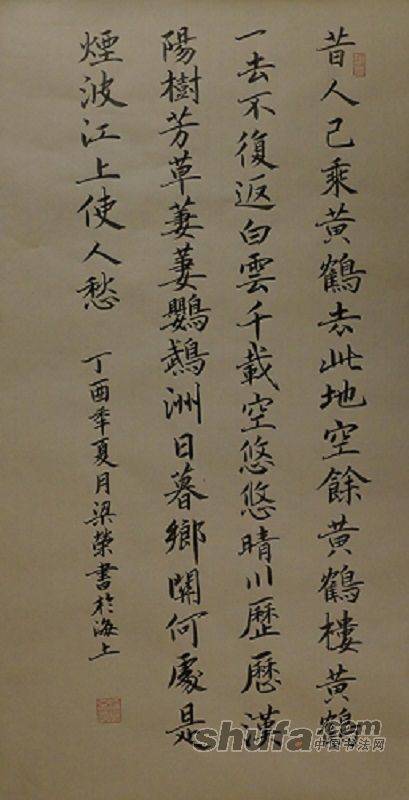 昔人已乘黃鶴去此地空餘黃鶴樓黃鶴
一去不復返白雲千載空悠悠晴川歷歷漢
陽樹芳草萋萋鸚鵡洲日暮鄉關何處是
煙波江上使人愁
丁酉秊夏月梁榮書於海上
shufa.com
中国书法网